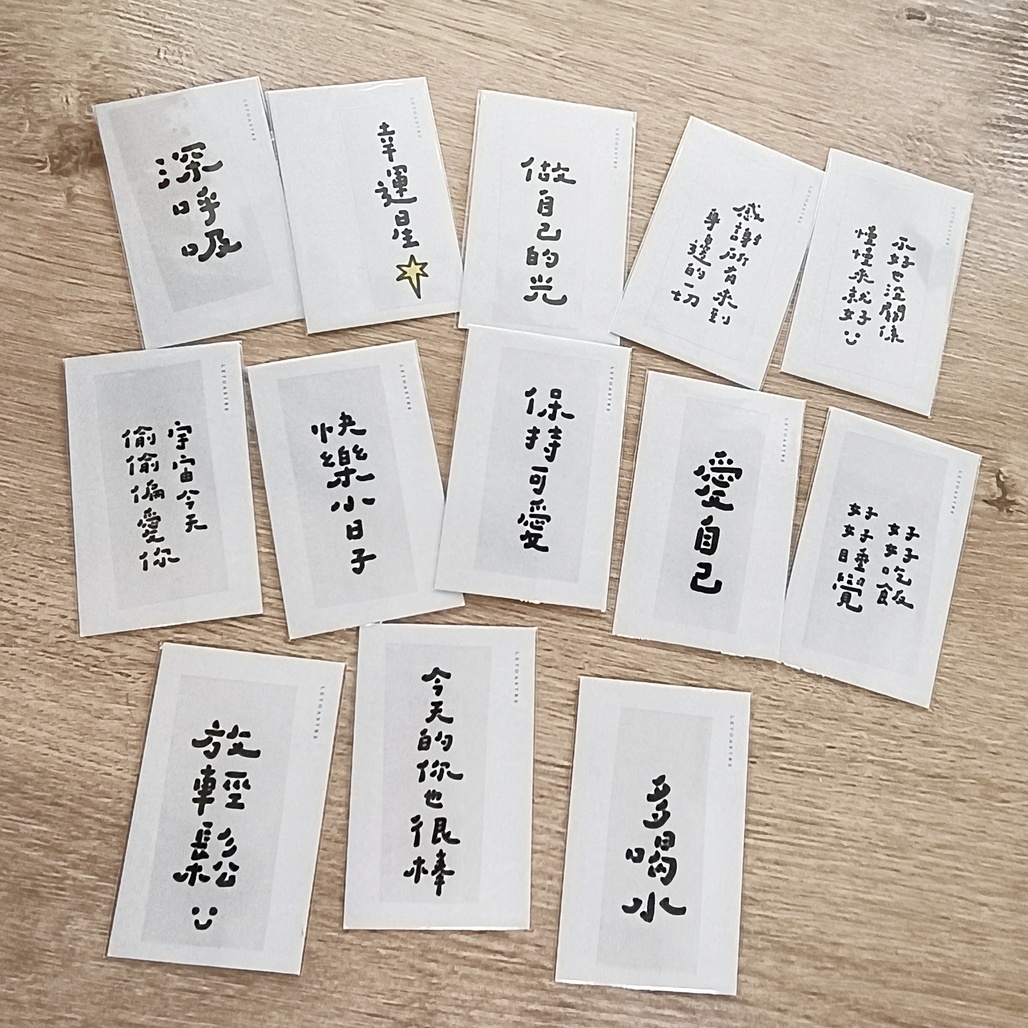 深呼吸
幸運星
做自己的光
感謝所有來到
身邊的一切
不好也沒關係
慢慢來就好
宇宙今天
偷偷偏愛你
快樂小日子
保持可愛
愛自己
好好吃飯
好好睡覺
放輕鬆
今天的你也很棒
多喝水